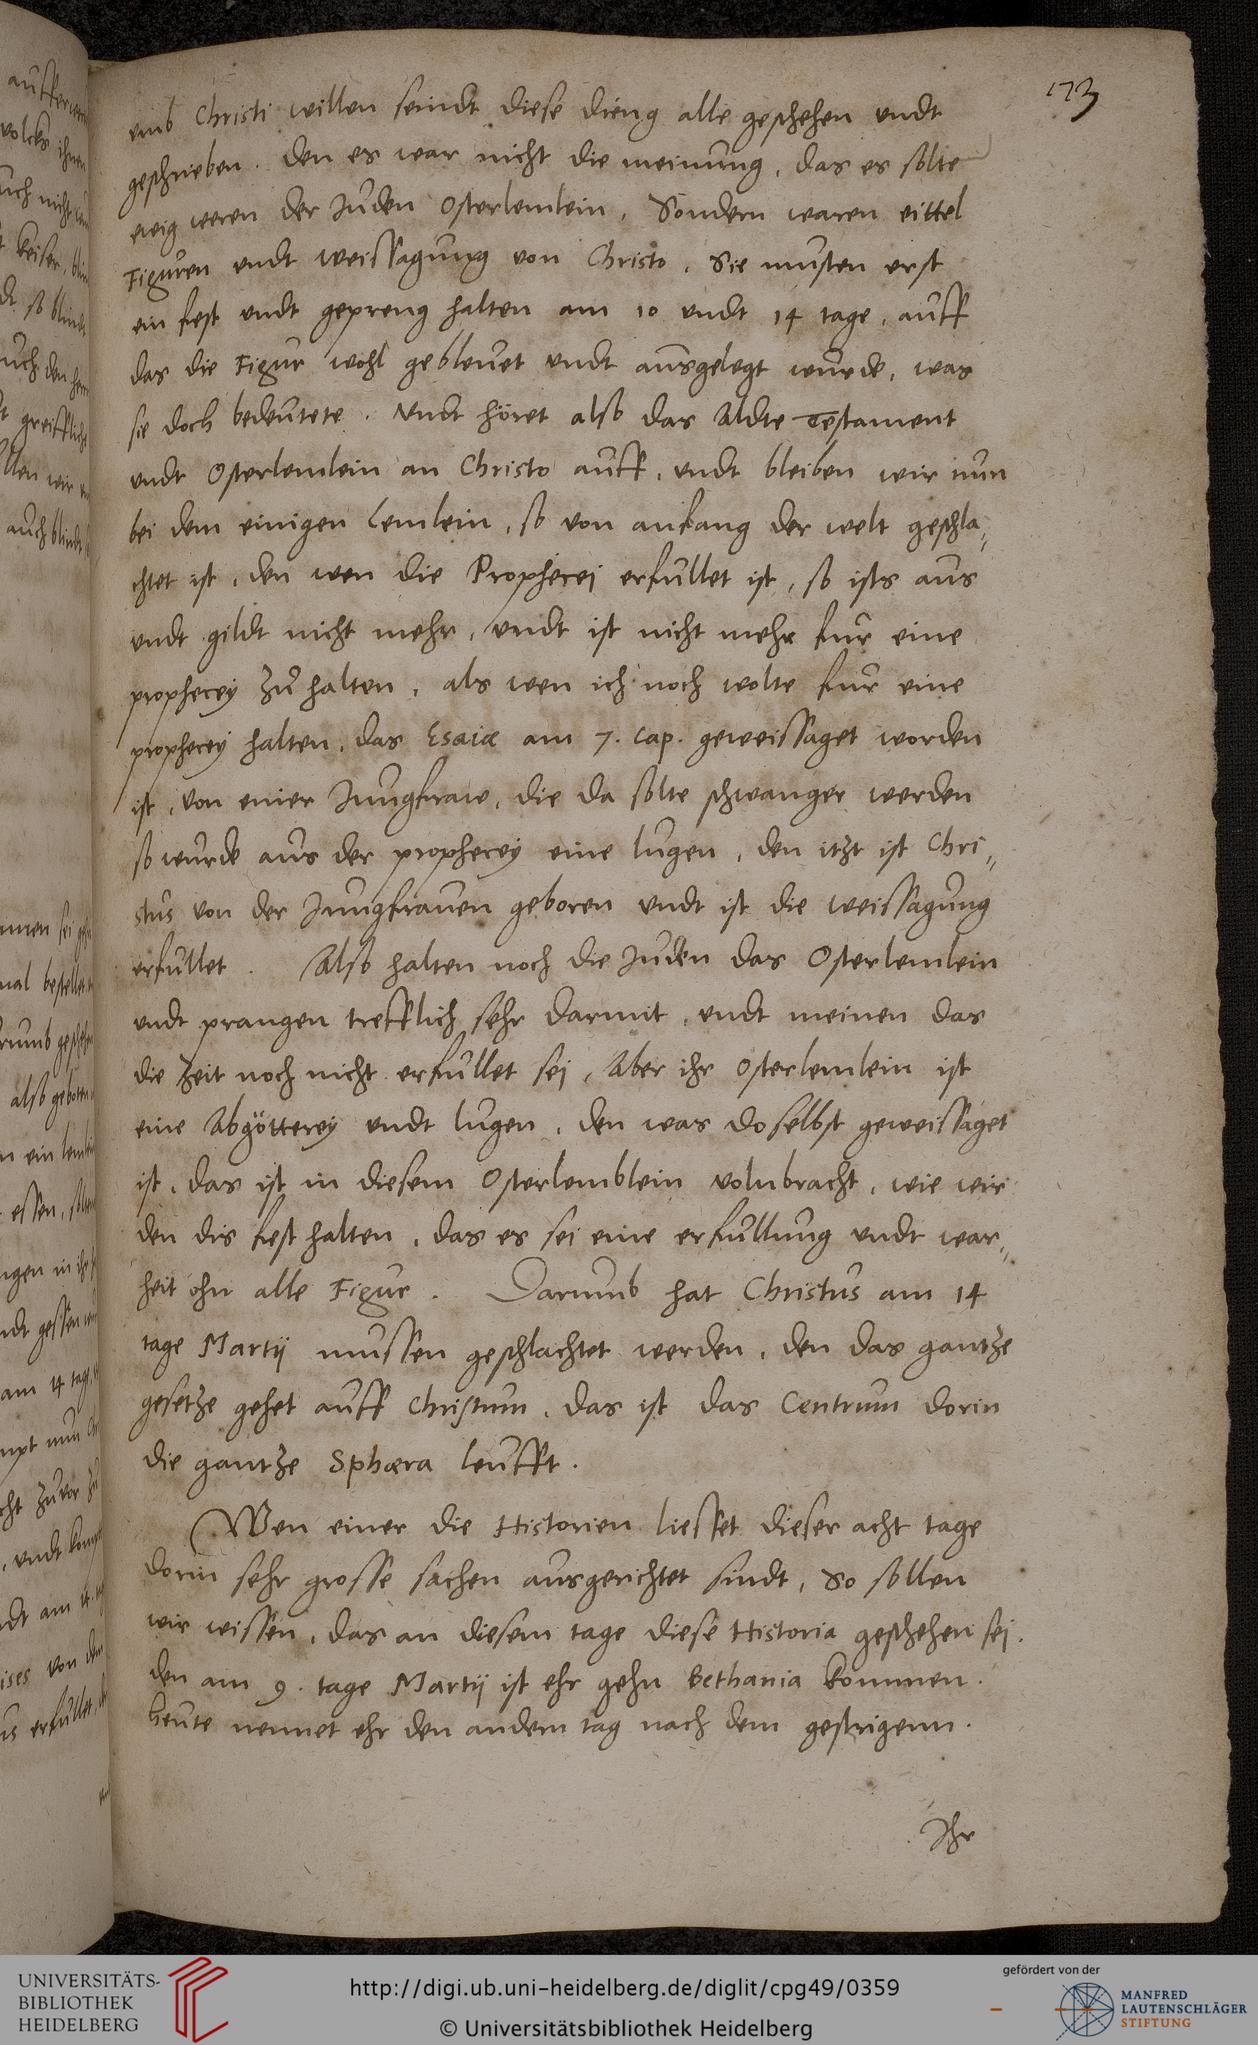 173
umb Christi willen seindt diese dieng alle geschehen undt
geschrieben. den es war nicht die meinung, das es solte
ewig weren der Juden Osterlemlein, Sondern waren eittel
Figuren undt weissagung von Christo, Sie musten erst
ein fest undt gepreng halten am 10 undt 14 tage, auff
das die Figur wohl gebleuet undt ausgelegt wurde, was
sie doch bedeutete. Undt höret also das Aldte Testament
undt Osterlemlein an Christo auff, undt bleiben wir nun
bei dem einigen Lemlein, so von anfang der welt geschla„
chtet ist, den wen die Prophecei erfullet ist, so ists aus
undt gildt nicht mehr, undt ist nicht mehr fur eine
prophecey zu halten, als wen ich noch wolte fur eine
prophecey halten, das Esaiæ am 7. cap. geweissaget worden
ist, von einer Jungfraw, die da solte schwanger werden
so wurde aus der prophecey eine lugen, den itzt ist Chri„
stus von der Jungfrauen geboren undt ist die weissagung
erfullet. Also halten noch die Juden das Osterlemlein
undt prangen trefflich sehr darmit, undt meinen das
die Zeit noch nicht erfullet sei, Aber ihr Osterlemlein ist
eine Abgötterey undt lugen, den was doselbst geweissaget
ist, das ist in diesem Osterlemblein volnbracht, wie wir
den dis fest halten, das es sei eine erfullung undt war„
heit ohn alle Figur. Darumb hat Christus am 14
tage Martij mussen geschlachtet werden, den das gantze
gesetze gehet auff Christum, das ist das Centrum dorin
die gantze Sphæra leufft.
Wen einer die Historien liesset dieser acht tage
dorin sehr grosse sachen ausgerichtet sindt, So sollen
wir wissen, das an diesem tage diese Historia geschehen sei.
den am 9. tage Martij ist ehr gehn Bethania kommen.
heute nennet ehr den andern tag nach dem gestrigenn.
Ihr
UNIVERSITÄTS-
BIBLIOTHEK
HEIDELBERG
http://digi.ub.uni-heidelberg.de/diglit/cpg49/0359
© Universitätsbibliothek Heidelberg
gefördert von der
MANFRED
LAUTENSCHLÄGER
STIFTUNG